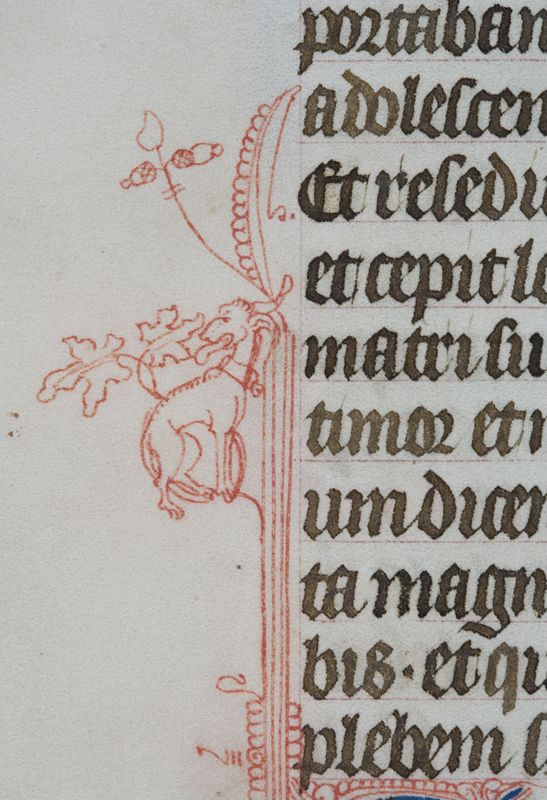 portaban
adolescen
Et resedu
et cepit lo
matri su
timor et
um dicen
ta magn
bis · et qu
plebem